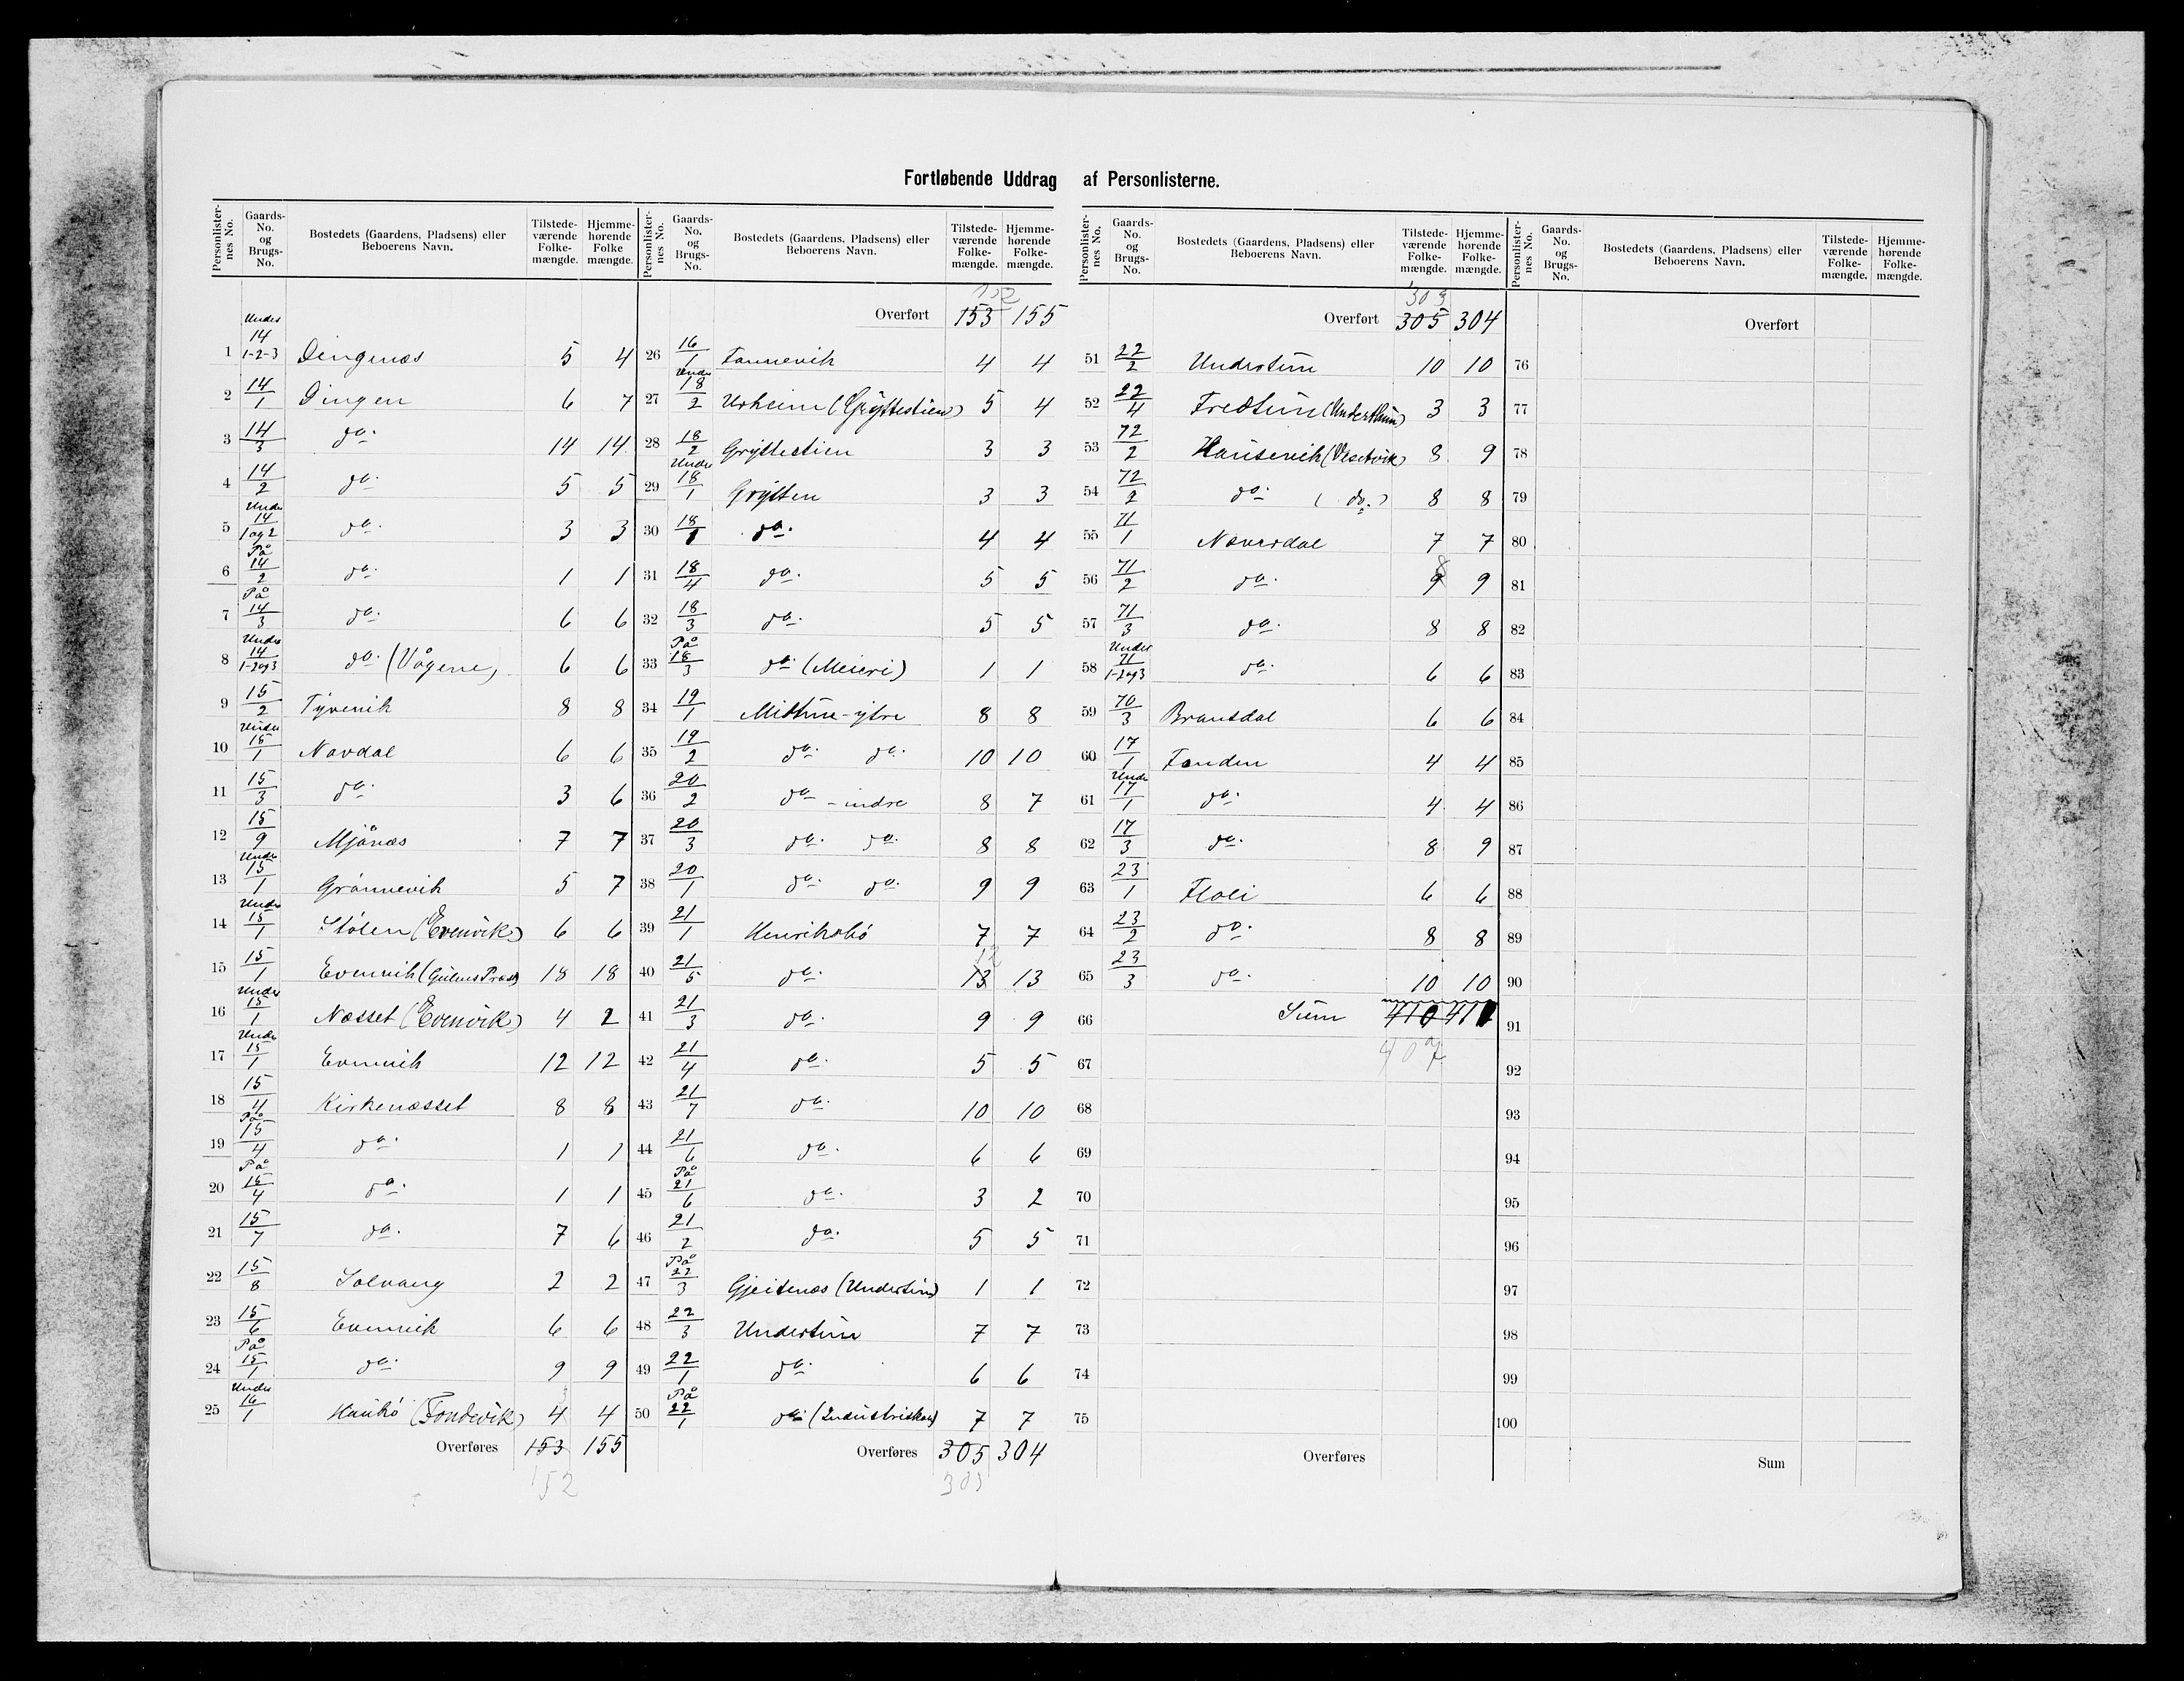 Fortløbende Uddrag af Personlisterne.
Personlisternes No. | Gaards-No. og Brugs-No. | Bostedets (Gaardens, Pladsens) eller Beboerens Navn. | Tilstedeværende Folkemængde. | Hjemmehørende Folkemængde.
1 | Under 14/1-2-3 | Dingenæs | 5 | 4
2 | 14/1 | Dingen | 6 | 7
3 | 14/3 | do. | 14 | 14
4 | 14/2 | do. | 5 | 5
5 | Under 14/1 og 2 | do. | 3 | 3
6 | På 14/2 | do. | 1 | 1
7 | På 14/3 | do. | 6 | 6
8 | Under 14/1-2og3 | do. (Vågene) | 6 | 6
9 | 15/2 | Tyvenik | 8 | 8
10 | Under 15/1 | Navdal | 6 | 6
11 | 15/3 | do. | 3 | 6
12 | 15/9 | Mjånæs | 7 | 7
13 | Under 15/1 | Grønnevik | 5 | 7
14 | Under 15/1 | Stølen (Evenvik) | 6 | 6
15 | 15/1 | Evenvik (Gulens Præst) | 18 | 18
16 | Under 15/1 | Næsset (Evenvik) | 4 | 2
17 | Under 15/1 | Evenvik | 12 | 12
18 | 15/4 | Kirkenæsset | 8 | 8
19 | På 15/4 | do. | 1 | 1
20 | På 15/4 | do. | 1 | 1
21 | 15/7 | do. | 7 | 6
22 | 15/8 | Solvang | 2 | 2
23 | 15/6 | Evenvik | 6 | 6
24 | På 15/1 | do. | 9 | 9
25 | Under 16/1 | (Fondevik) | 4 | 4
Overføres 153 155
152
Personlisternes No. | Gaards-No. og Brugs-No. | Bostedets (Gaardens, Pladsens) eller Beboerens Navn. | Tilstedeværende Folkemængde. | Hjemmehørende Folkemængde.
152
Overført 153 155
26 | 16/1 | Fannevik | 4 | 4
27 | Under 18/2 | Urheim (Gryttestien) | 5 | 4
28 | 18/2 | Gryttestien | 3 | 3
29 | Under 18/1 | Grytten | 3 | 3
30 | 18/1 | do. | 4 | 4
31 | 18/4 | do. | 5 | 5
32 | 18/3 | do. | 5 | 5
33 | På 18/3 | do. (Meieri) | 1 | 1
34 | 19/1 | Mittun-ytre | 8 | 8
35 | 19/2 | do. do. | 10 | 10
36 | 20/2 | do - indre | 8 | 7
37 | 20/3 | do. do. | 8 | 8
38 | 20/1 | do. do. | 9 | 9
39 | 21/1 | Henriksbø | 7 | 7
40 | 21/5 | do. | 13 12 | 13
41 | 21/3 | do. | 9 | 9
42 | 21/4 | do. | 5 | 5
43 | 21/7 | do. | 10 | 10
44 | 21/6 | do. | 6 | 6
45 | På 21/6 | do. | 3 | 2
46 | 21/2 | do. | 5 | 5
47 | På 22/3 | Gjeitenæs (Undertun) | 1 | 1
48 | 22/3 | Undertun | 7 | 7
49 | 22/1 | do. | 6 | 6
50 | På 22/1 | do. (Industriskole) | 7 | 7
Overføres 305 304
303
Personlisternes No. | Gaards-No. og Brugs-No. | Bostedets (Gaardens, Pladsens) eller Beboerens Navn. | Tilstedeværende Folkemængde. | Hjemmehørende Folkemængde.
303
Overført 305 304
51 | 22/2 | Undertun | 10 | 10
52 | 22/4 | Fredtun (Underthun) | 3 | 3
53 | 72/2 | Hausevik (Vesetvik) | 8 | 9
54 | 72/2 | do. (do.) | 8 | 8
55 | 71/1 | Næverdal | 7 | 7
56 | 71/2 | do. | 9 8 | 9
57 | 71/3 | do. | 8 | 8
58 | Under 71/1-2og3 | do. | 6 | 6
59 | 70/3 | Brandsdal | 6 | 6
60 | 17/1 | Fonden | 4 | 4
61 | Under 17/1 | do. | 4 | 4
62 | 17/3 | do. | 8 | 9
63 | 23/1 | Floli | 6 | 6
64 | 23/2 | do. | 8 | 8
65 | 23/3 | do. | 10 | 10
66 | Sum | 410 | 411
67 | 407
68
69
70
71
72
73
74
75
Overføres
Personlisternes No. | Gaards-No. og Brugs-No. | Bostedets (Gaardens, Pladsens) eller Beboerens Navn. | Tilstedeværende Folkemængde. | Hjemmehørende Folkemængde.
Overført
76
77
78
79
80
81
82
83
84
85
86
87
88
89
90
91
92
93
94
95
96
97
98
99
100
Sum